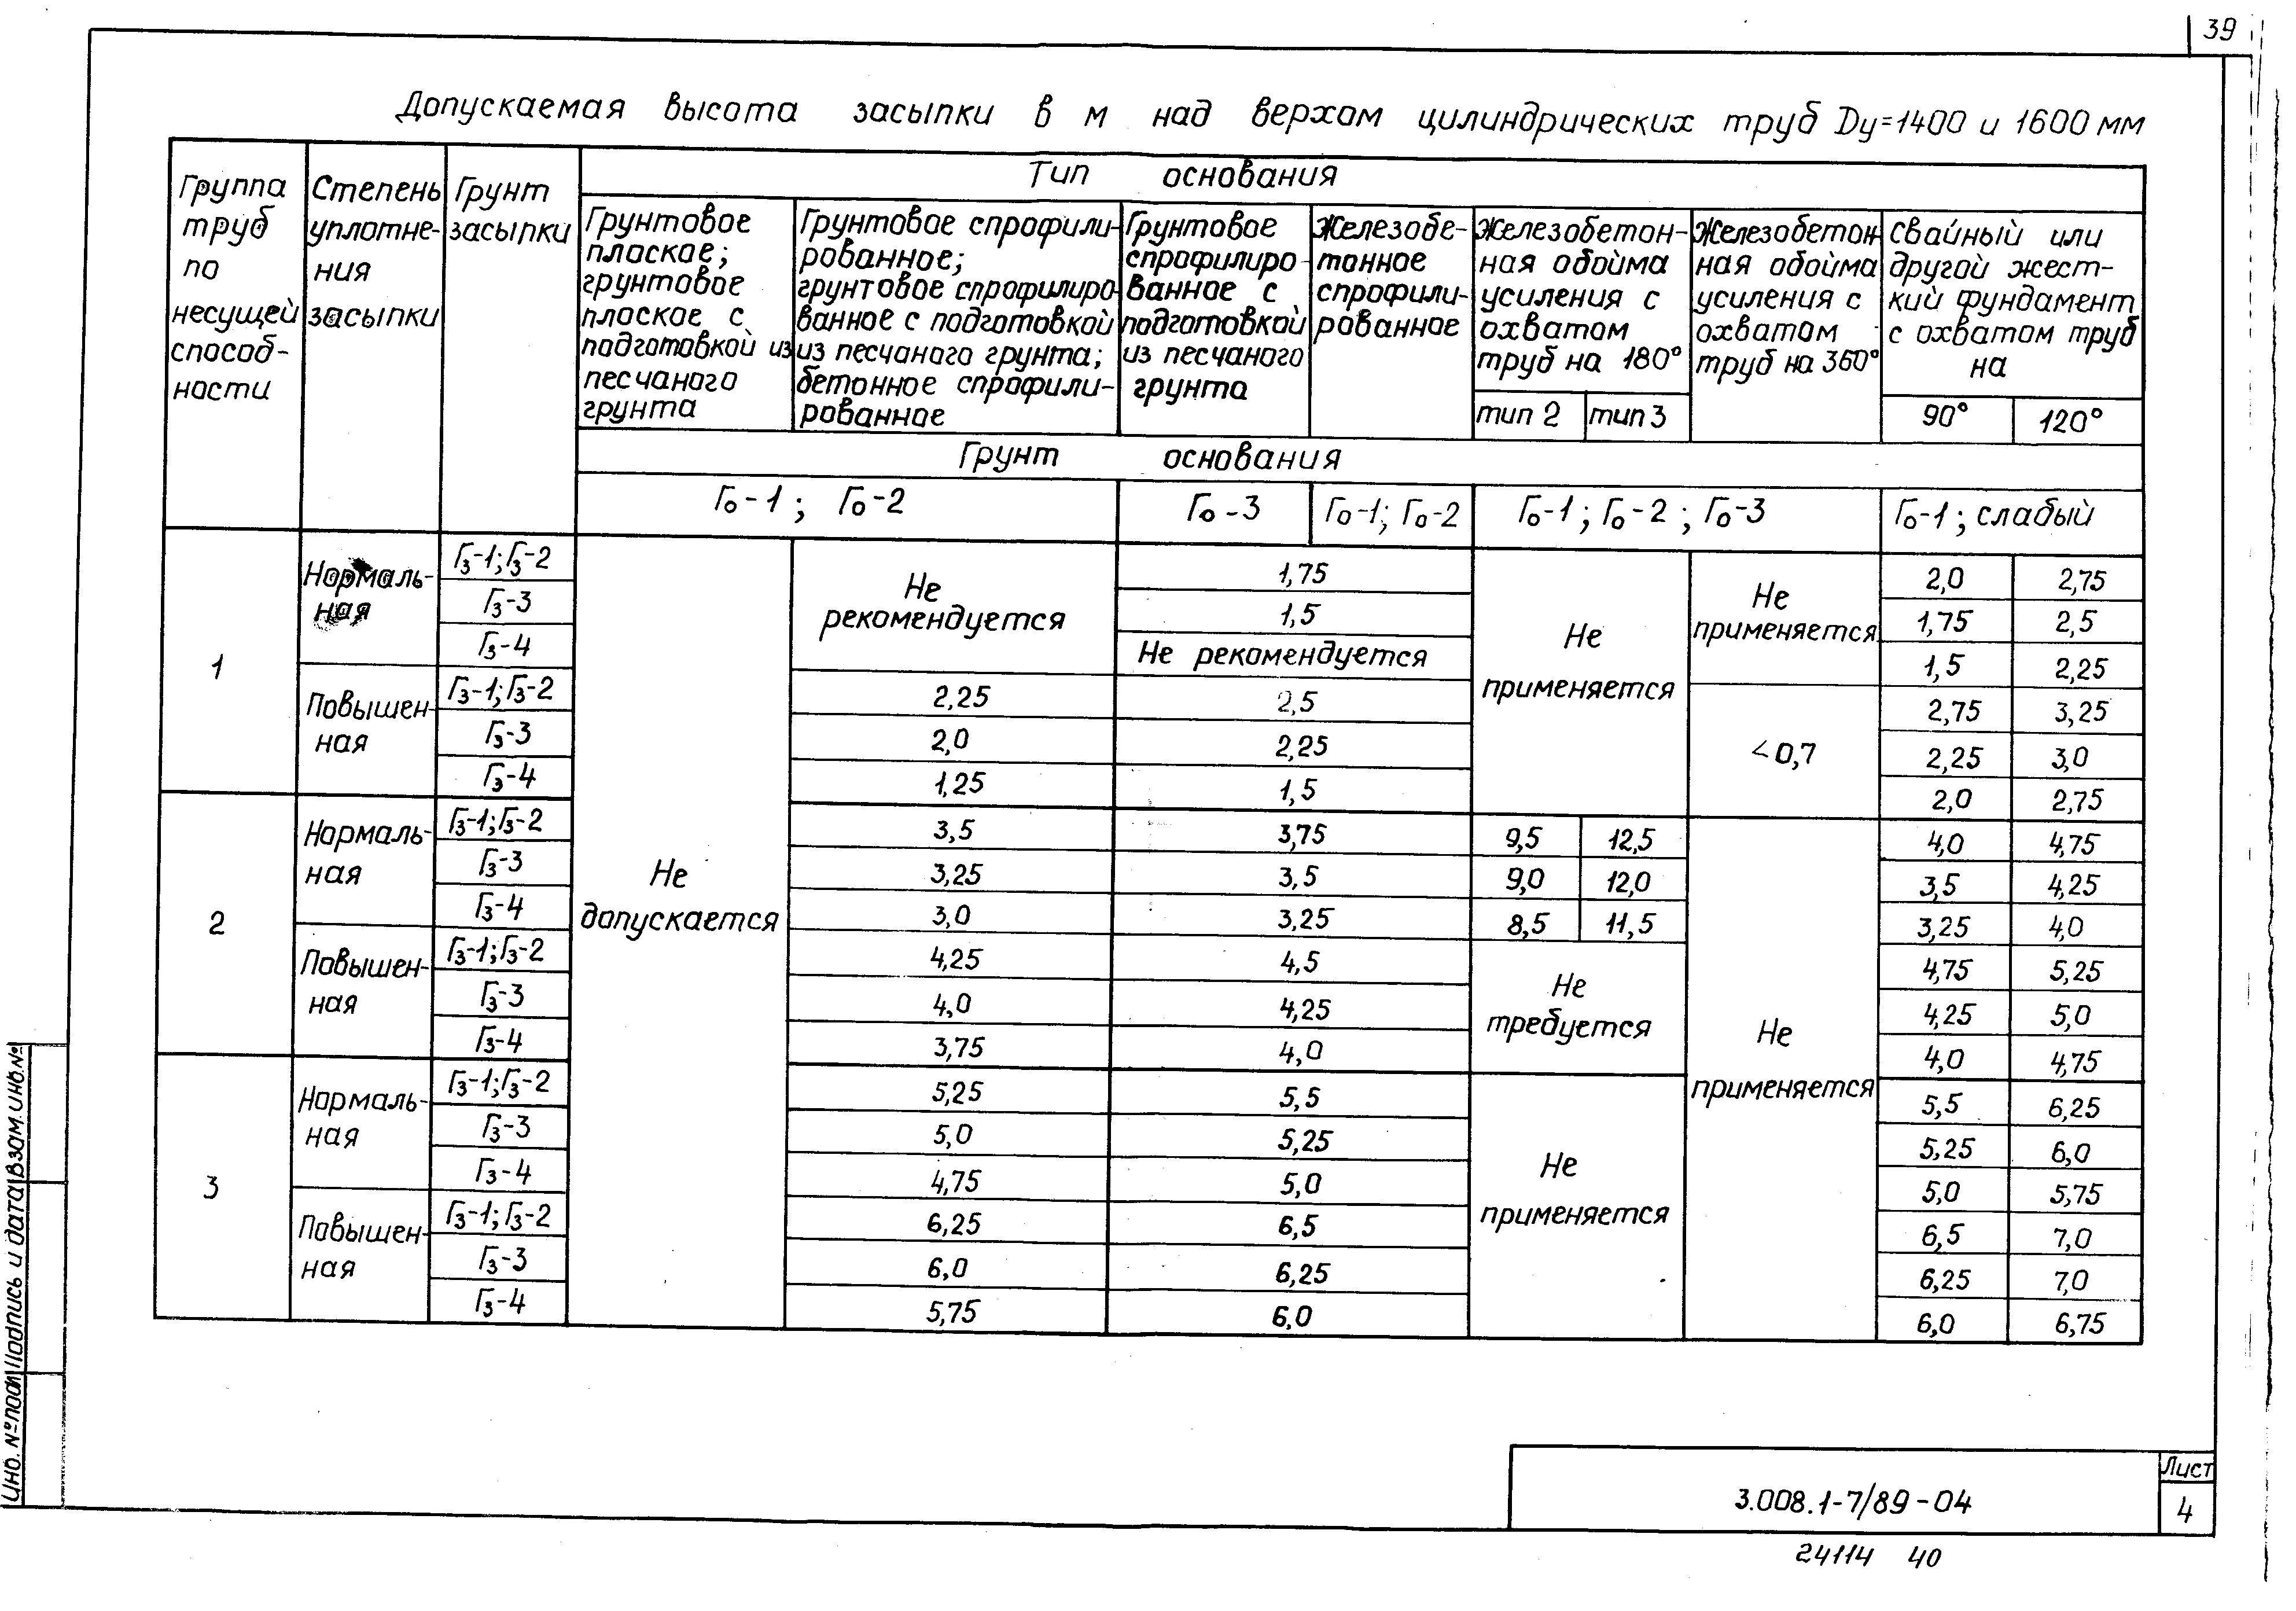 39
Допускаемая высота засыпки в м над верхом цилиндрических труб Dу=1400 и 1600 мм
Группа труб по несущей способ-ности
Степень уплотне-ния засыпки
Грунт засыпки
Тип основания
Грунтовое плоское; грунтовое плоское с подготовкой из песчаного грунта
Грунтовое спрофили-рованное; грунтовое спрофилиро-ванное с подготовкой из песчаного грунта; бетонное спрофили-рованное
Грунтовое спрофилиро-ванное с подготовкой из песчаного грунта
Железобе-тонное спрофили-рованное
Железобетон-ная обойма усиления с охватом труб на 180°
тип 2 тип 3
Железобетон-ная обойма усиления с охватом труб на 360°
свайный или другой жест-кий фундамент с охватом труб на
90° 120°
Грунт основания
Го-1; Го-2
Го-3
Го-1; Го-2
Го-1; Го-2; Го-3
Го-1; слабый
1
Нормаль-ная
Гз-1; Гз-2 1,75 2,0 2,75
Гз-3 1,5 1,75 2,5
Гз-4 Не рекомендуется 1,5 2,25
Не рекомендуется
Не применяется
Не применяется
Повышен-ная
Гз-1; Гз-2 2,25 2,5 2,75 3,25
Гз-3 2,0 2,25 <0,7 2,25 3,0
Гз-4 1,25 1,5 2,0 2,75
2
Нормаль-ная
Гз-1; Гз-2 3,5 3,75 9,5 12,5 4,0 4,75
Гз-3 3,25 3,5 9,0 12,0 3,5 4,25
Гз-4 3,0 3,25 8,5 11,5 3,25 4,0
Не допускается
Повышен-ная
Гз-1; Гз-2 4,25 4,5 4,75 5,25
Гз-3 4,0 4,25 4,25 5,0
Гз-4 3,75 4,0 4,0 4,75
Не требуется
Не применяется
3
Нормаль-ная
Гз-1; Гз-2 5,25 5,5 5,5 6,25
Гз-3 5,0 5,25 5,25 6,0
Гз-4 4,75 5,0 5,0 5,75
Не применяется
Повышен-ная
Гз-1; Гз-2 6,25 6,5 6,5 7,0
Гз-3 6,0 6,25 6,25 7,0
Гз-4 5,75 6,0 6,0 6,75
Инв. № подл Подпись и дата Взам. инв. №
3.008.1-7/89-04
Лист
4
24114 40